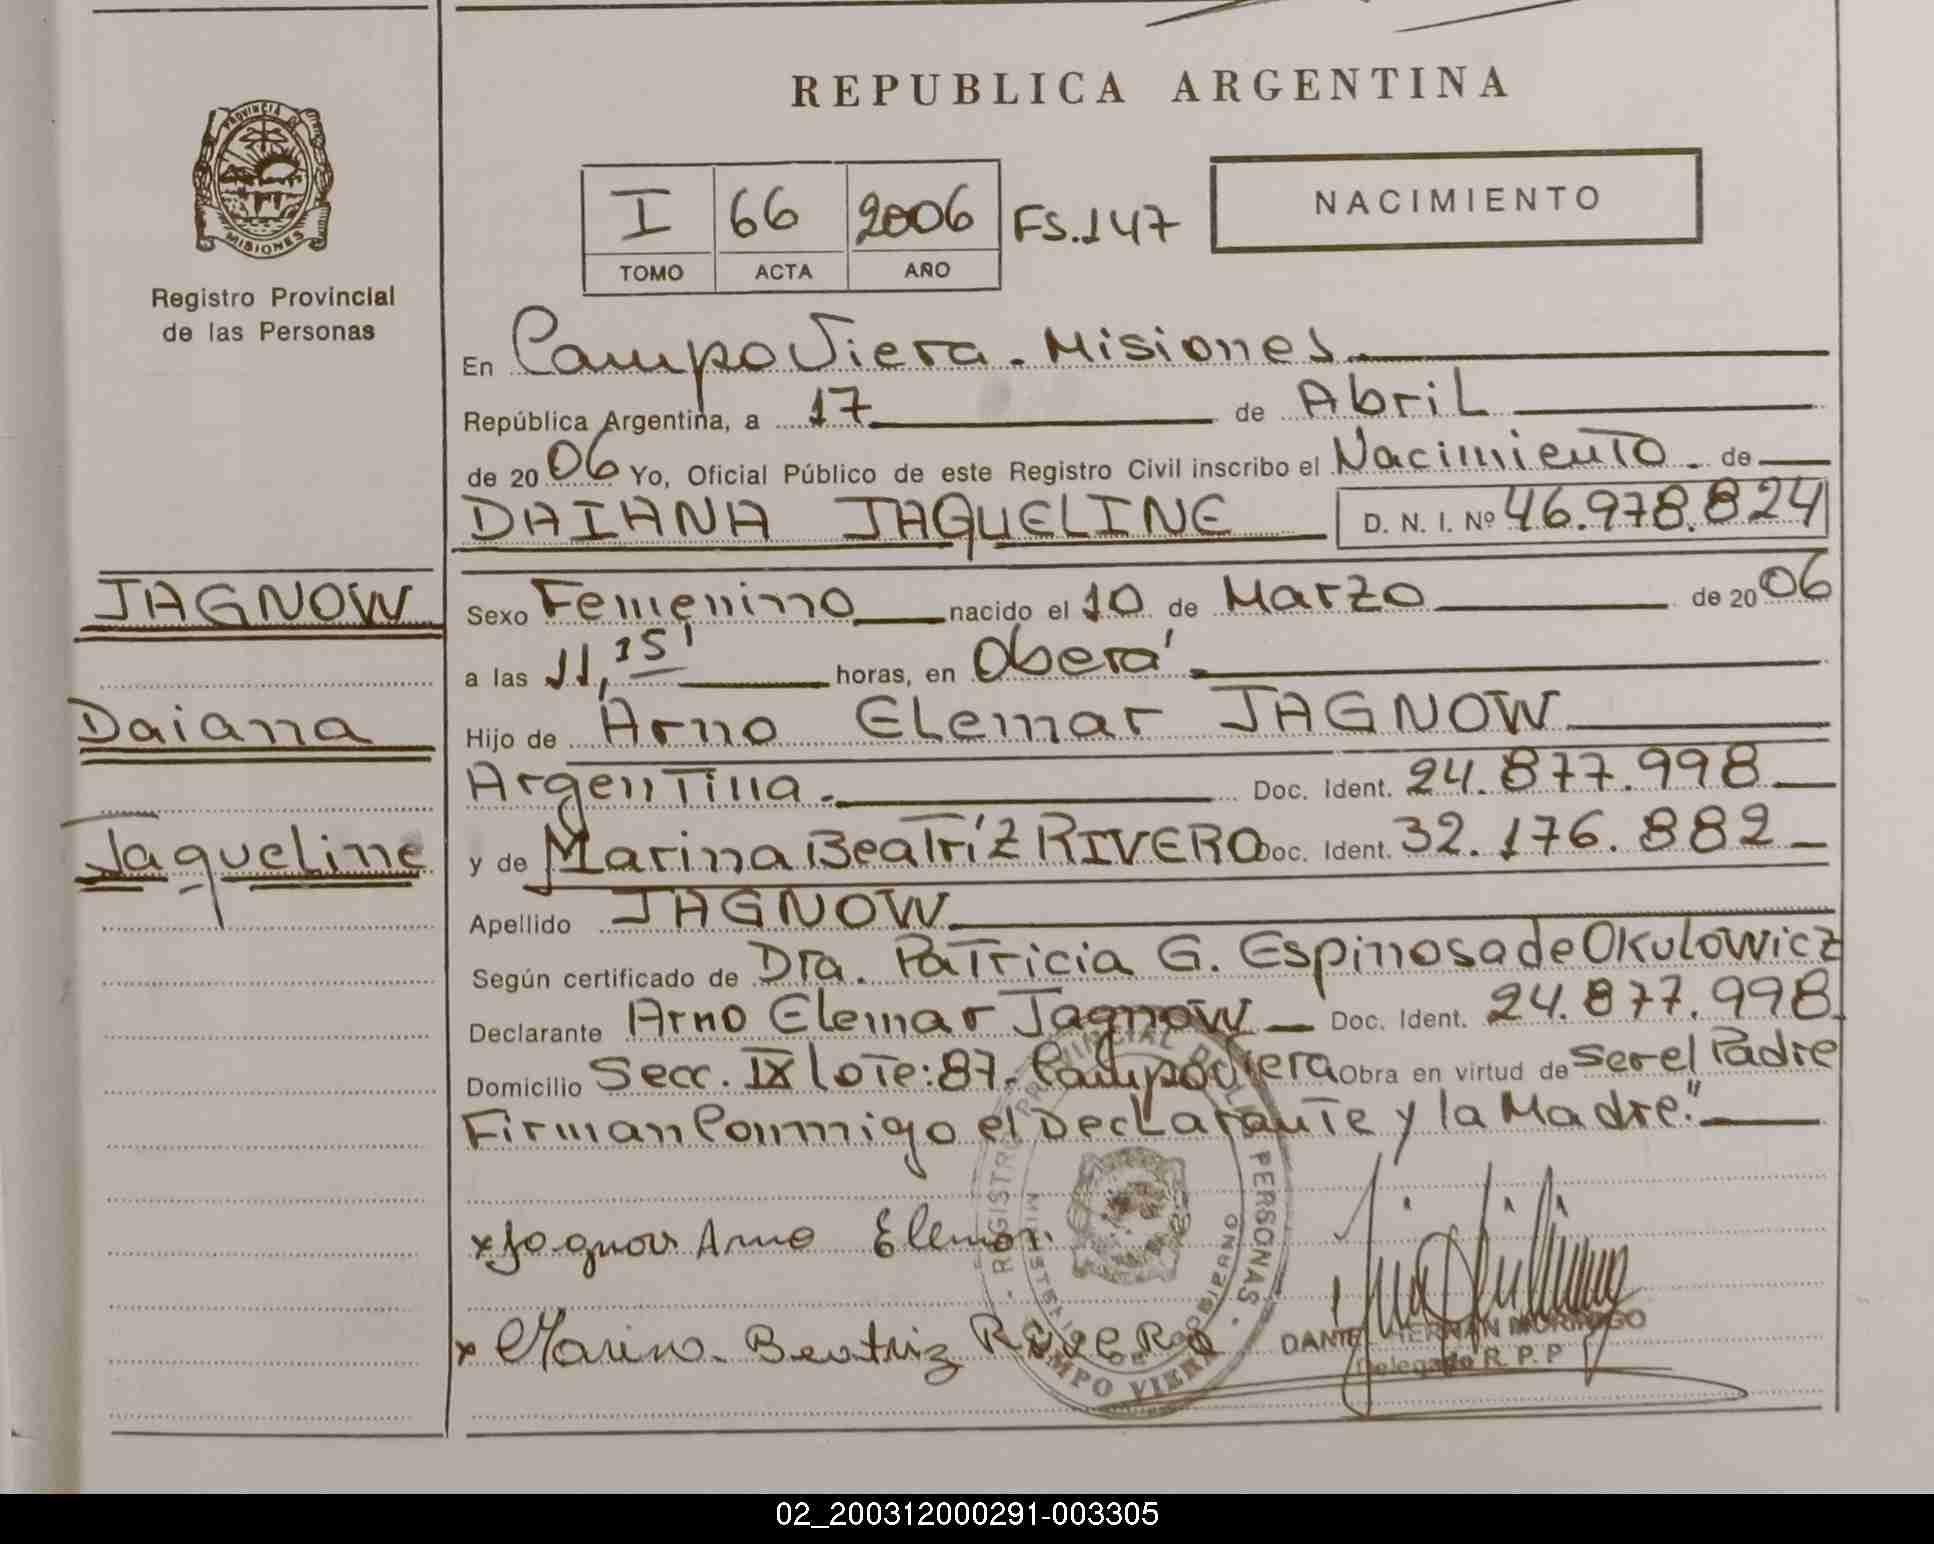 REPUBLICA ARGENTINA
PROVINCIA DE
MISIONES
Registro Provincial
de las Personas
I 66 2006 FS.147
TOMO ACTA AÑO
NACIMIENTO
En Campo Viera - Misiones
República Argentina, a 17 de Abril
de 20 06 Yo, Oficial Público de este Registro Civil inscribo el Nacimiento - de
DAIANA JAQUELINE D. N. I. Nº 46.978.824
JAGNOW
Daiana
Jaqueline
Sexo Femenino nacido el 10 de Marzo de 20 06
a las 11,15' horas, en Oberá
Hijo de Arno Elemar JAGNOW
Argentina. Doc. Ident. 24.877.998
y de Marina Beatríz RIVERO Doc. Ident. 32.176.882
Apellido JAGNOW
Según certificado de Dra. Patricia G. Espinosa de Okulowicz
Declarante Arno Elemar Jagnow Doc. Ident. 24.877.998
Domicilio Secc. IX lote: 87. Campo Viera Obra en virtud de ser el Padre
Firman Conmigo el Declarante y la Madre."
x Jagnow Arno Elemar
x Marina Beatriz Rivero
REGISTRO PROVINCIAL DE LAS PERSONAS
CAMPO VIERA
DANIEL HERNAN MORINIGO
Delegado R. P. P
02_200312000291-003305